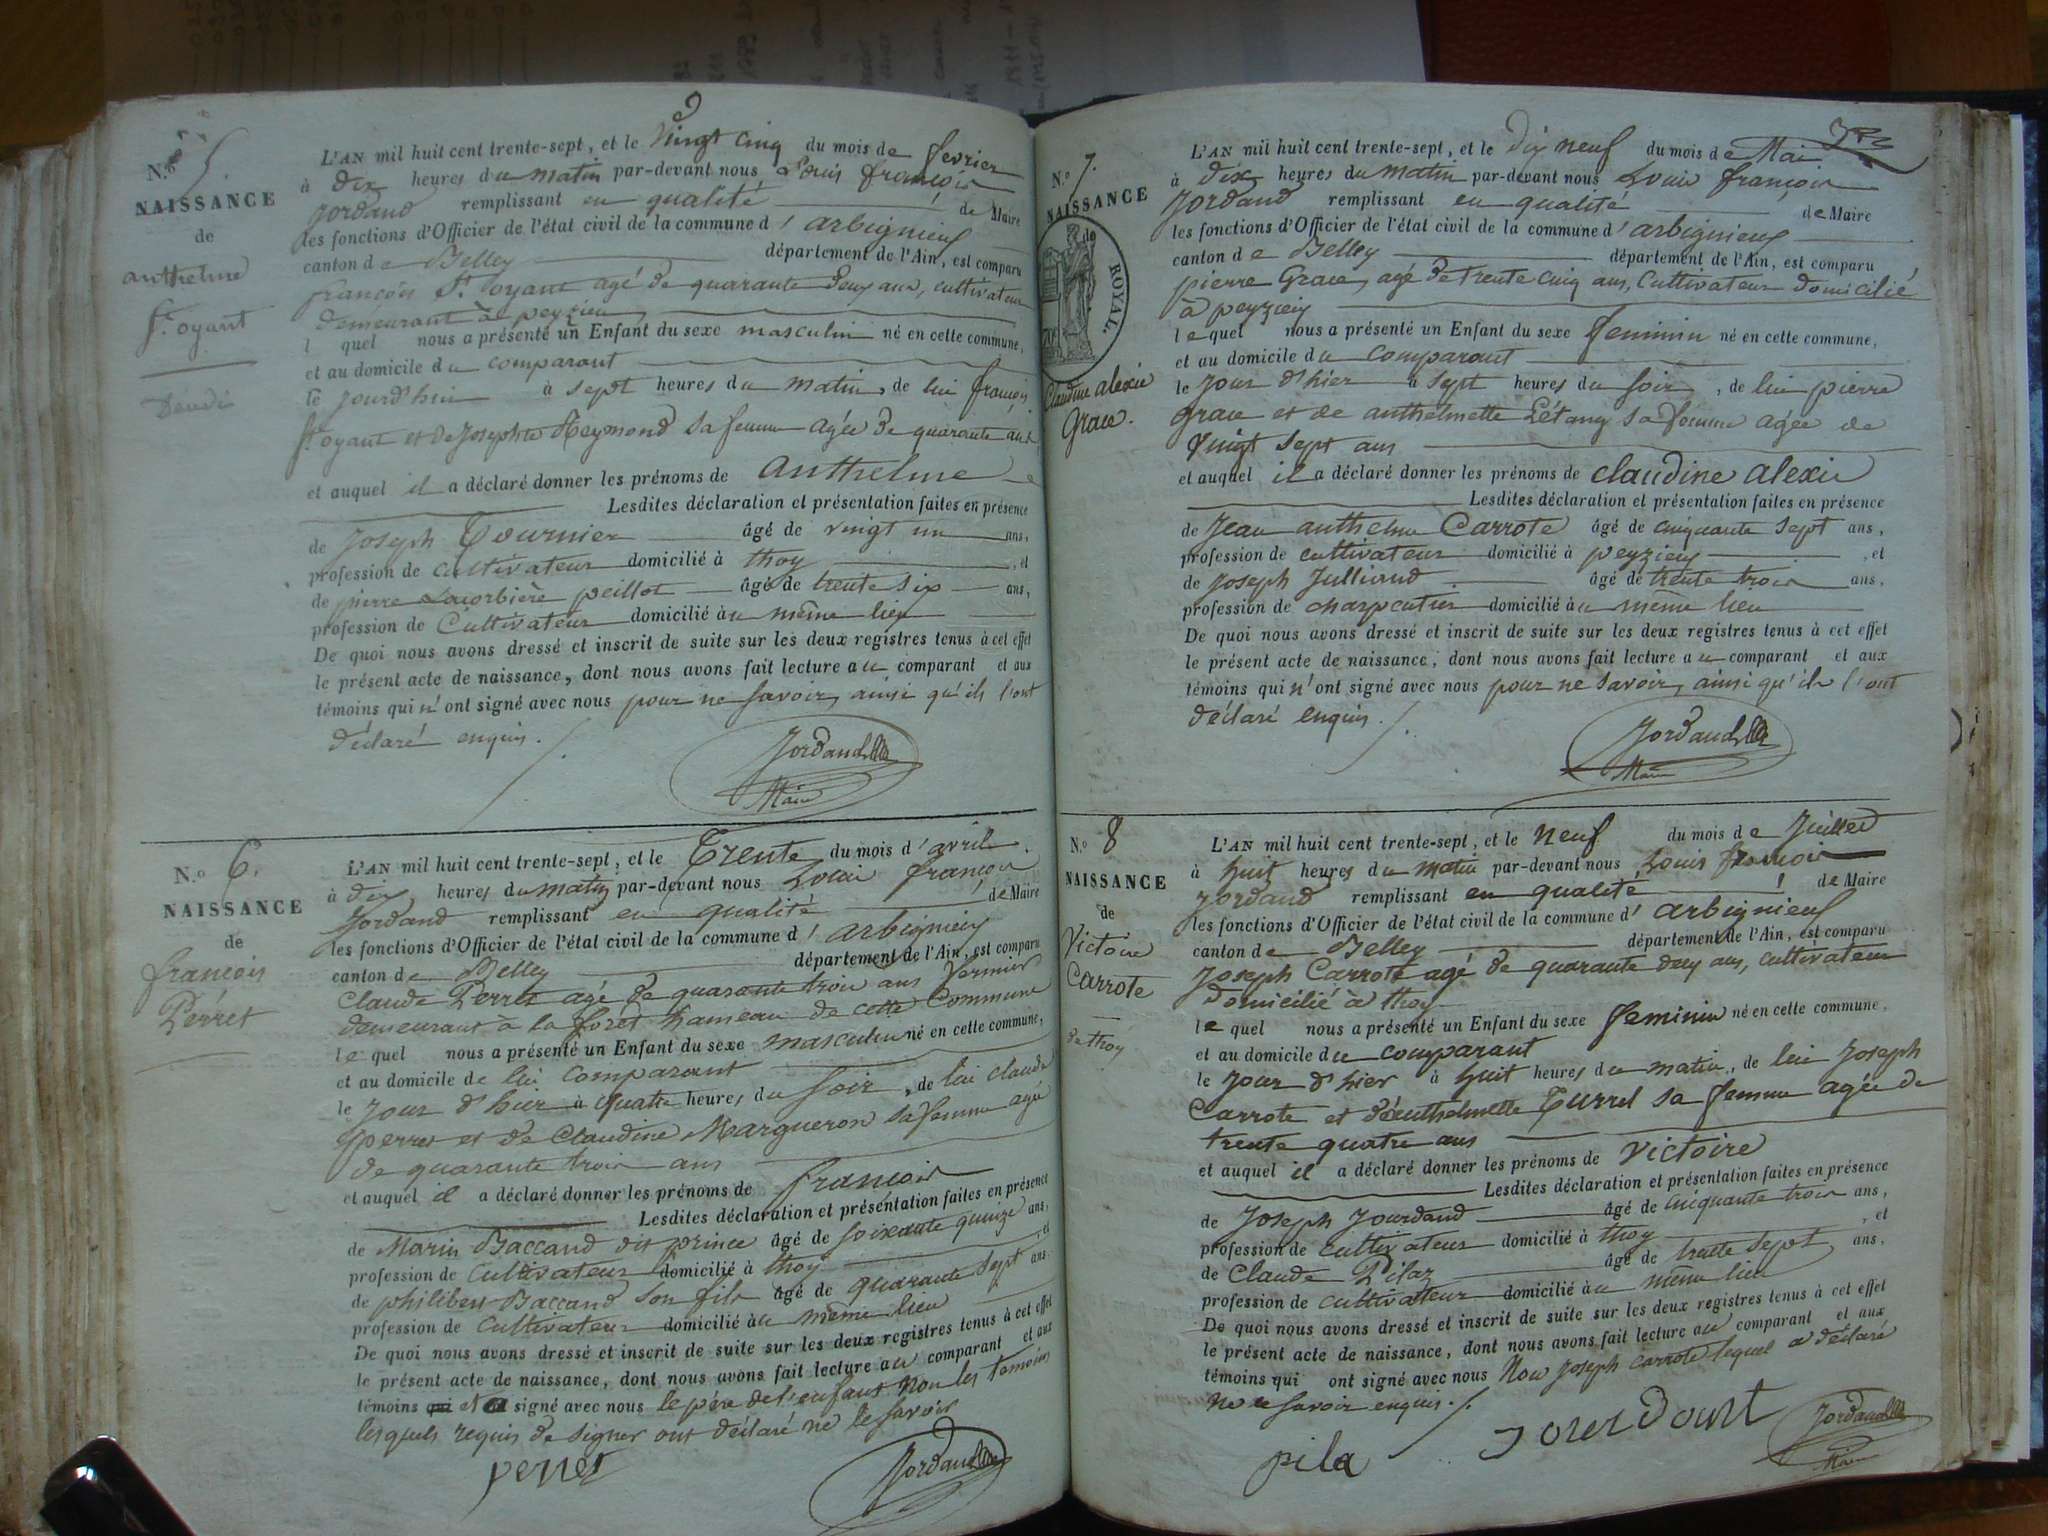 N.° 5.
NAISSANCE
de
anthelme
St. oyant
L'AN mil huit cent trente-sept, et le Vingt cinq du mois de fevrier
à dix heures du matin par-devant nous Louis françois
Jordand remplissant en qualité de Maire
les fonctions d'Officier de l'état civil de la commune d'arbignieux
canton de Belley département de l'Ain, est comparu
françois St. oyant agé de quarante deux ans, cultivateur
demeurant à peyzieu
lequel nous a présenté un Enfant du sexe masculin né en cette commune,
et au domicile du comparant
le jourd'hui à sept heures du matin, de lui françois
St. oyant et de Josephte Reymond sa femme agée de quarante ans
et auquel il a déclaré donner les prénoms de anthelme
Lesdites déclaration et présentation faites en présence
de Joseph Tournier âgé de vingt un ans,
profession de cultivateur domicilié à thoy, et
de pierre Lacorbière peillot âgé de trente six ans,
profession de Cultivateur domicilié au même lieu
De quoi nous avons dressé et inscrit de suite sur les deux registres tenus à cet effet
le présent acte de naissance, dont nous avons fait lecture au comparant et aux
témoins qui n'ont signé avec nous pour ne savoir, ainsi qu'ils l'ont
déclaré enquis.
Jordand
Maire
N.° 6.
NAISSANCE
de
françois
Perret
L'AN mil huit cent trente-sept, et le Trente du mois d'avril.
à dix heures du matin par-devant nous Louis françois
Jordand remplissant en qualité de Maire
les fonctions d'Officier de l'état civil de la commune d'arbignieux
canton de Belley département de l'Ain, est comparu
Claude Perret agé de quarante trois ans fermier
demeurant à la foret hameau de cette Commune
lequel nous a présenté un Enfant du sexe masculin né en cette commune,
et au domicile de lui comparant
le jour d'hier à quatre heures du soir, de lui claude
perret et de Claudine Margueron sa femme agée
de quarante trois ans
et auquel il a déclaré donner les prénoms de françois
Lesdites déclaration et présentation faites en présence
de Marin Baccand dit prince âgé de soixante quinze ans,
profession de Cultivateur domicilié à thoy, et
de philibert Baccand son fils âgé de quarante sept ans
profession de Cultivateur domicilié au même lieu
De quoi nous avons dressé et inscrit de suite sur les deux registres tenus à cet effet
le présent acte de naissance, dont nous avons fait lecture au comparant et aux
témoins qui et a signé avec nous le père de l'enfant non les temoins
lesquels requis de signer ont déclaré ne le savoir
perret
Jordand
N.° 7.
NAISSANCE
de
ROYAL.
Claudine alexie
Grace.
L'AN mil huit cent trente-sept, et le Dix neuf du mois de Mai
à dix heures du matin par-devant nous Louis françois
Jordand remplissant en qualité de Maire
les fonctions d'Officier de l'état civil de la commune d'arbignieux
canton de Belley département de l'Ain, est comparu
pierre Grace, agé de trente cinq ans, Cultivateur domicilié
à peyzieu
lequel nous a présenté un Enfant du sexe feminin né en cette commune,
et au domicile du comparant
le jour d'hier à sept heures du soir, de lui pierre
grace et de anthelmette Létang sa femme agée de
Vingt sept ans
et auquel il a déclaré donner les prénoms de claudine alexie
Lesdites déclaration et présentation faites en présence
de Jean anthelme Carrote âgé de cinquante sept ans,
profession de cultivateur domicilié à peyzieu, et
de Joseph Julliand âgé de trente trois ans,
profession de charpentier domicilié au même lieu
De quoi nous avons dressé et inscrit de suite sur les deux registres tenus à cet effet
le présent acte de naissance, dont nous avons fait lecture au comparant et aux
témoins qui n'ont signé avec nous pour ne savoir, ainsi qu'ils l'ont
déclaré enquis.
Jordand
Maire
N.° 8
NAISSANCE
de
Victoire
Carrote
de thoy
L'AN mil huit cent trente-sept, et le Neuf du mois de Juillet
à huit heures du matin par-devant nous Louis françois
Jordand remplissant en qualité de Maire
les fonctions d'Officier de l'état civil de la commune d'arbignieux
canton de Belley département de l'Ain, est comparu
Joseph Carrote agé de quarante deux ans, cultivateur
domicilié à thoy
lequel nous a présenté un Enfant du sexe feminin né en cette commune,
et au domicile du comparant
le jour d'hier à huit heures du matin, de lui Joseph
Carrote et d'anthelmette Turrel sa femme agée de
trente quatre ans
et auquel il a déclaré donner les prénoms de Victoire
Lesdites déclaration et présentation faites en présence
de Joseph Jourdand âgé de cinquante trois ans,
profession de cultivateur domicilié à thoy, et
de Claude Pilaz âgé de trente sept ans,
profession de cultivateur domicilié au même lieu
De quoi nous avons dressé et inscrit de suite sur les deux registres tenus à cet effet
le présent acte de naissance, dont nous avons fait lecture au comparant et aux
témoins qui ont signé avec nous Non Joseph carrote lequel a déclaré
ne le savoir enquis.
pila
Jourdant
Jordand
Maire